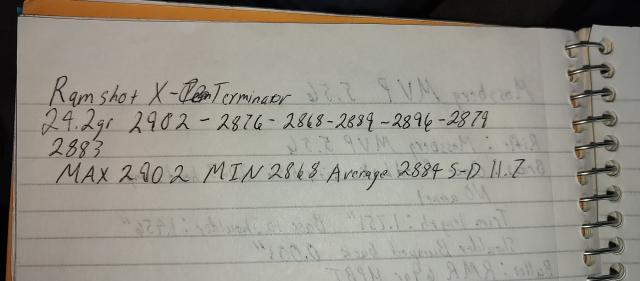 Ramshot X-Terminator
24.2gr 2902 - 2876 - 2868 - 2884 - 2896 - 2879
2883
MAX 2902 MIN 2868 Average 2884 S-D 11.7